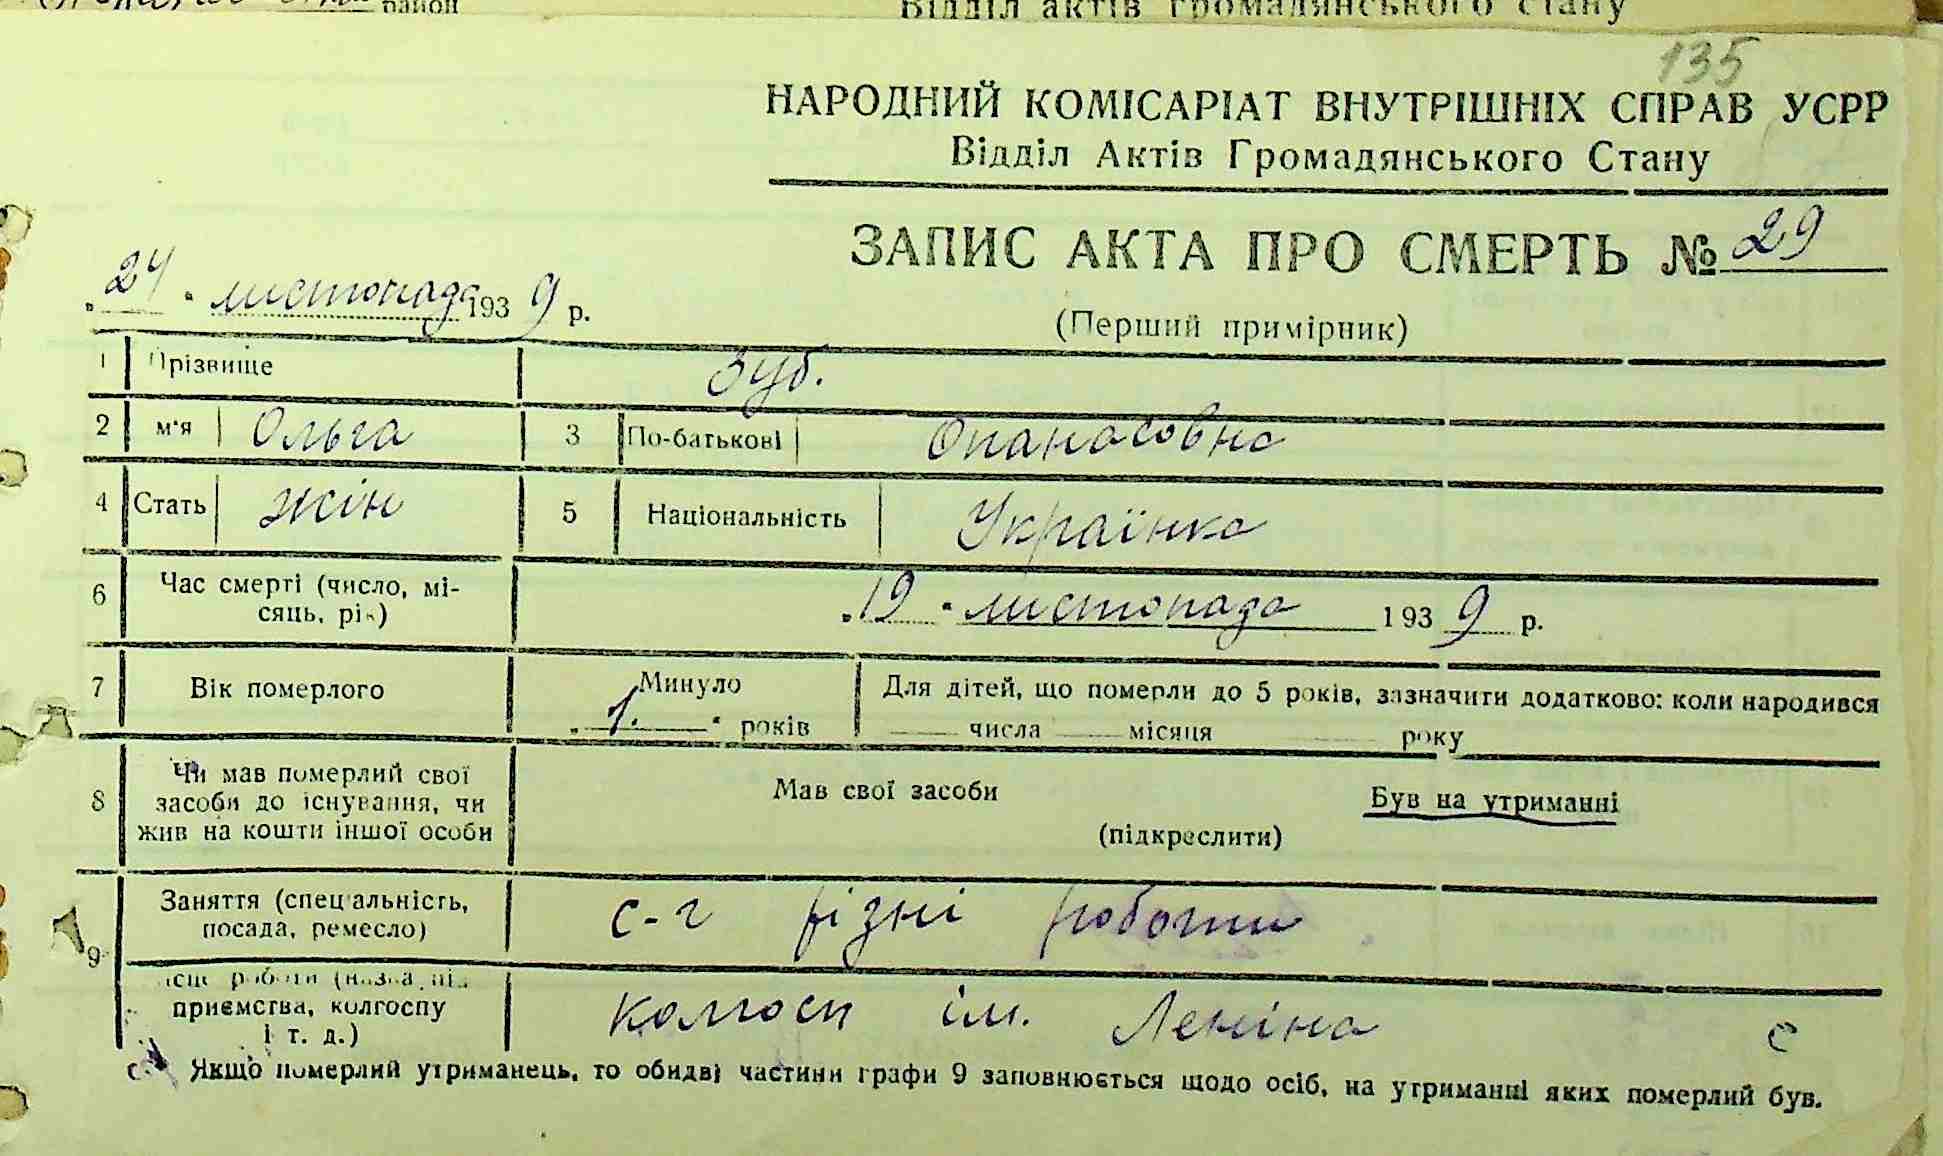 район
Відділ актів громадянського стану
135
НАРОДНИЙ КОМІСАРІАТ ВНУТРІШНІХ СПРАВ УСРР
Відділ Актів Громадянського Стану
ЗАПИС АКТА ПРО СМЕРТЬ № 29
„24" листопада 1939 р.
(Перший примірник)
1 Прізвище Зуб.
2 м'я Ольга 3 По-батькові Опанасовна
4 Стать жін 5 Національність Українка
6 Час смерті (число, мі-
сяць, рік) „19" листопада 1939 р.
7 Вік померлого Минуло Для дітей, що померли до 5 років, зазначити додатково: коли народився
„1." років числа місяця року
8 Чи мав померлий свої
засоби до існування, чи
жив на кошти іншої особи
Мав свої засоби Був на утриманні
(підкреслити)
9 Заняття (спеціальність,
посада, ремесло) с-г різні роботи
місце роботи (назва під
приємства, колгоспу
і т. д.) колгосп ім. Леніна
Якщо померлий утриманець, то обидві частини графи 9 заповнюється щодо осіб, на утриманні яких померлий був.